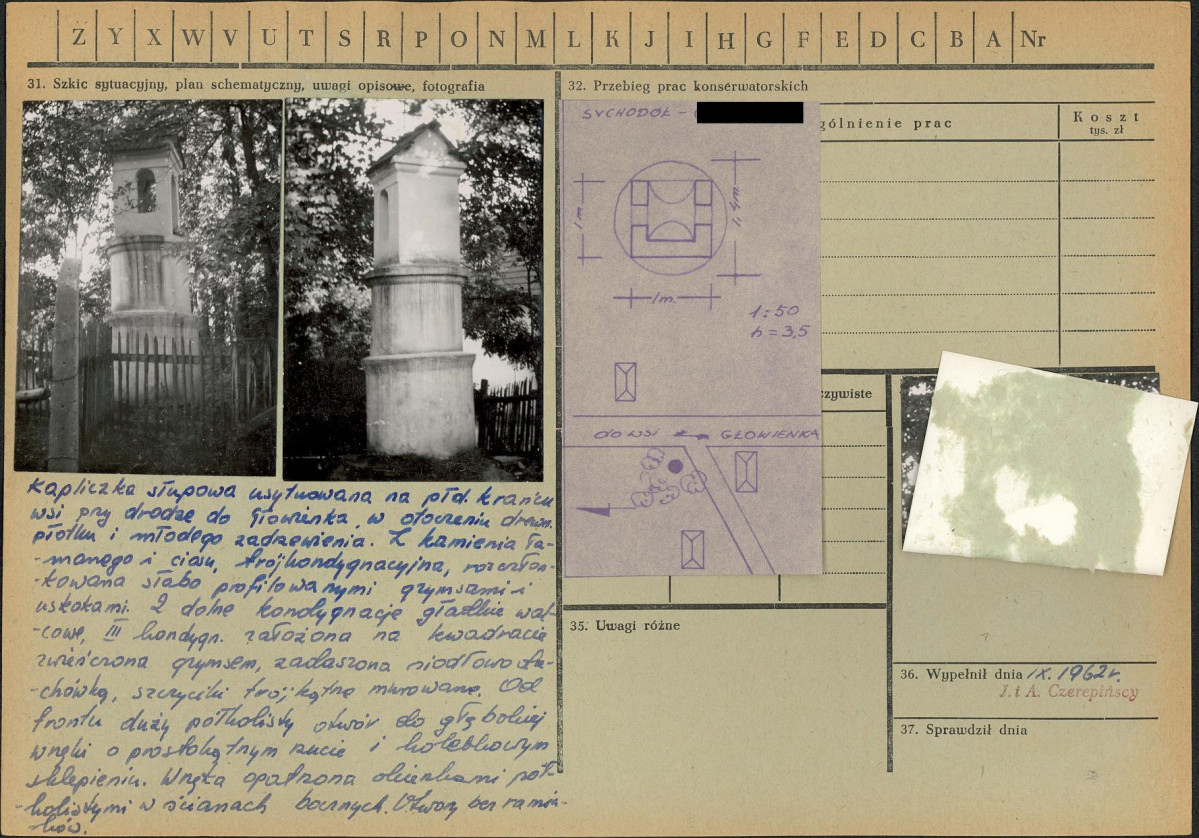 Z Y X W V U T S R P O N M L K J I H G F E D C B A Nr
31. Szkic sytuacyjny, plan schematyczny, uwagi opisowe, fotografia
Kapliczka słupowa usytuowana na płd. krańcu
wsi przy drodze do Głowienka, w otoczeniu drewn.
płotku i młodego zadrzewienia. Z kamienia ła-
-manego i ciosu, trójkondygnacyjna, rozczłon-
-kowana słabo profilowanymi gzymsami i
uskokami. 2 dolne kondygnacje gładkie wal-
-cowe, III kondygn. założona na kwadracie
zwieńczona gzymsem, zadaszona siodłowo da-
-chówką, szczyciki trójkątne murowane. Od
frontu duży półkolisty otwór do głębokiej
wnęki o prostokątnym rzucie i kolebkowym
sklepieniu. Wnęka opatrzona okienkami pół-
-kolistymi w ścianach bocznych. Otwory bez ramia-
-ków.
32. Przebieg prac konserwatorskich
SUCHODÓŁ -
gólnienie prac
Koszt
tys. zł
1m
1,4m
1m.
1:50
h = 3,5
DO WSI GŁOWIENKA
czywiste
35. Uwagi różne
36. Wypełnił dnia IX. 1962r.
J. i A. Czerepińscy
37. Sprawdził dnia